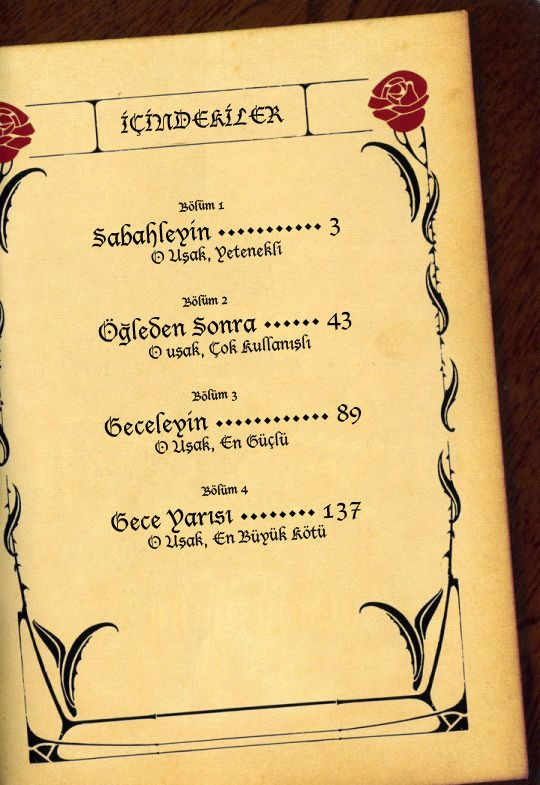 İÇİNDEKİLER
Bölüm 1
Sabahleyin ♦♦♦♦♦♦♦♦♦♦♦ 3
O Uşak, Yetenekli
Bölüm 2
Öğleden Sonra ♦♦♦♦♦♦ 43
O uşak, Çok Kullanışlı
Bölüm 3
Geceleyin ♦♦♦♦♦♦♦♦♦♦♦♦ 89
O Uşak, En Güçlü
Bölüm 4
Gece Yarısı ♦♦♦♦♦♦♦♦ 137
O Uşak, En Büyük Kötü